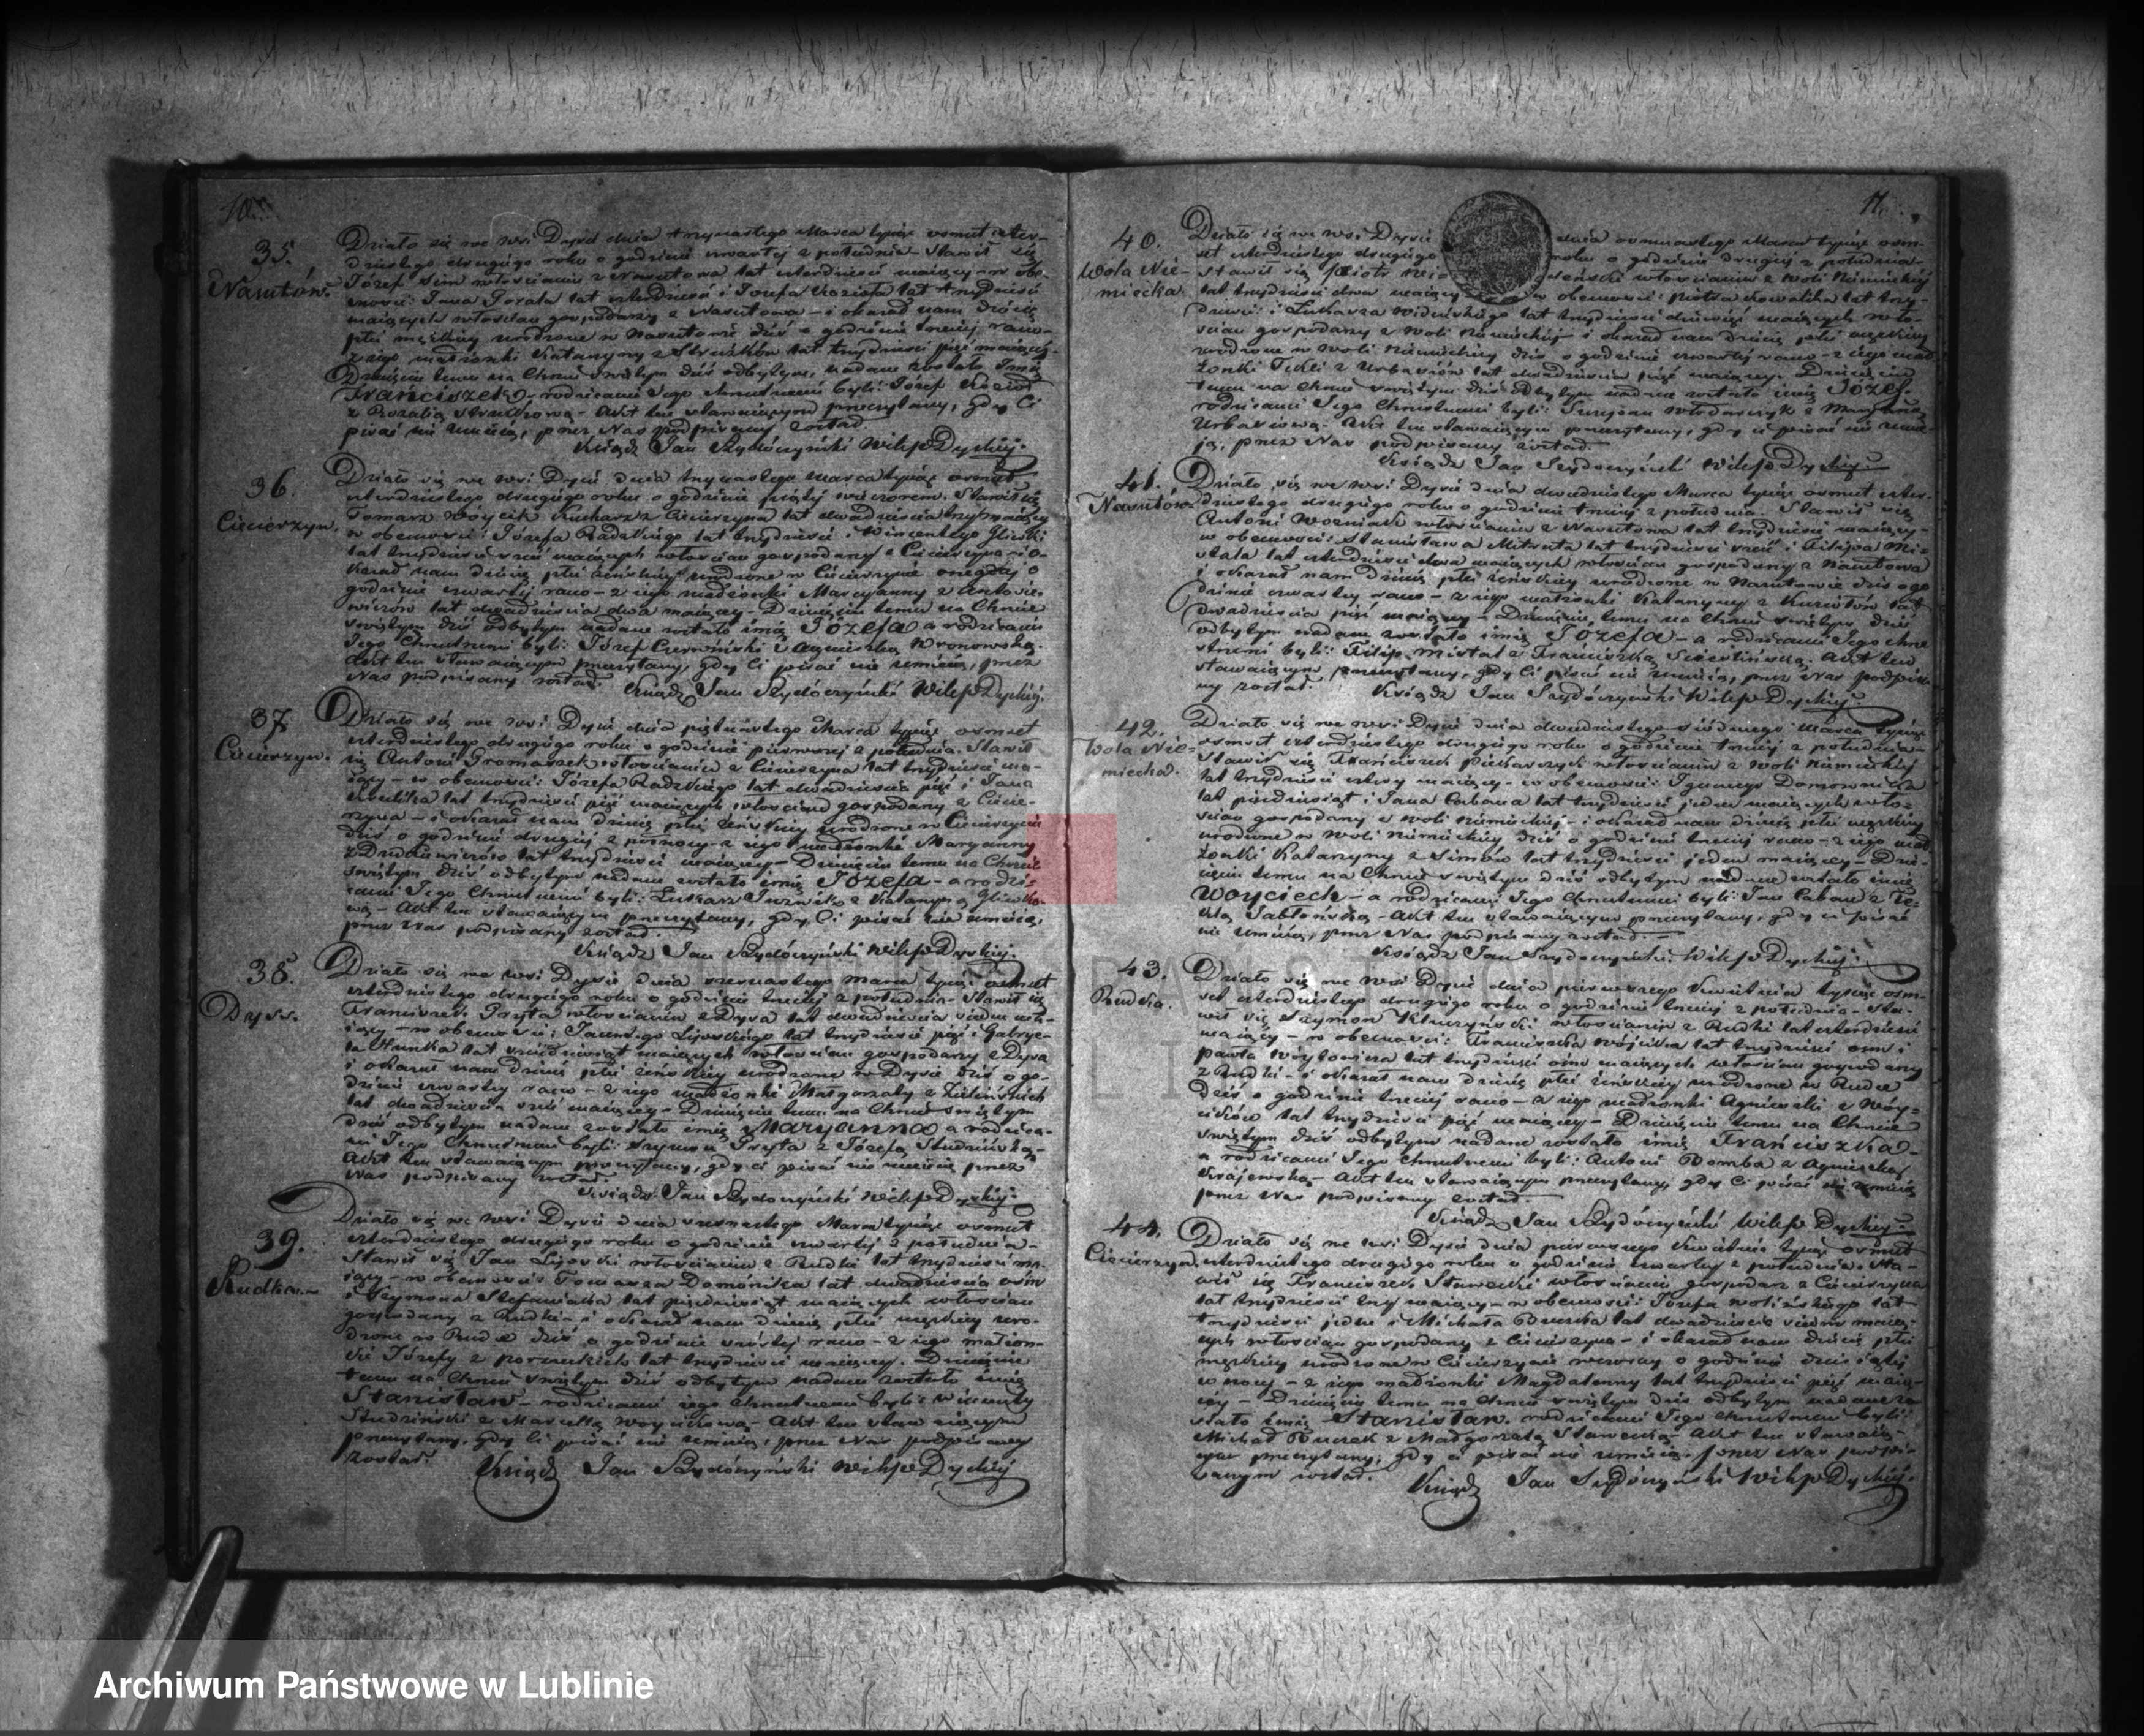 10.
35.
Nasutów.
Działo się we wsi Dysie dnia trzynastego Marca tysiąc osmset czter-
dziestego drugiego roku o godzinie czwartej z południa – Stawił się
Józef Sim włościanin z Nasutowa lat czterdzieści maiący – w obe-
cności: Jana lat czterdzieści i Józefa Kozioła lat trzydzieści
maiących włościan gospodarzy z Nasutowa – i okazał nam dziecię
płci męzkiey urodzone w Nasutowie dziś o godzinie trzeciej rano –
z iego małżonki Katarzyny z lat trzydzieści pięć maiącey –
Dziecięciu temu na Chrzcie Świętym dziś odbytym, nadane zostało Imię
Franciszek – rodzicami Jego Chrzestnemi byli: Józef Kozioł
z Rozalią – Akt ten stawaiącym przeczytany, gdy Ci
pisać nie umieią, przez Nas podpisany został.
Ksiądz Jan Szydoczyński Wik: P: Dyskiej.
36.
Ciecierzyn.
Działo się we wsi Dysie dnia trzynastego Marca tysiąc osmset
czterdziestego drugiego roku o godzinie piątej wieczorem. Stawił się
Tomasz Wóycik Kucharz z Ciecierzyna lat dwadzieścia trzy maiący
w obecności: Józefa Radzkiego lat trzydzieści i Wincentego Gliwki
lat trzydzieści sześć maiących włościan gospodarzy z Ciecierzyna – i o-
kazał nam dziecię płci żeńskiey urodzone w Ciecierzynie onegday o
godzinie czwartej rano – z iego małżonki Maryanny z Antosie-
wiczów lat dwadzieścia dwa maiącey – Dziecięciu temu na Chrzcie
świętym dziś odbytym nadane zostało imię Józefa a rodzicami
Jego Chrzestnemi byli: Józef Czerwiński z Agnieszką Wronowską.
Akt ten stawaiącym przeczytany, gdy Ci pisać nie umieią, przez
Nas podpisany został. Ksiądz Jan Szydoczyński Wik: P: Dyskiej.
37.
Ciecierzyn.
Działo się we wsi Dysie dnia piętnastego Marca tysiąc osmset
czterdziestego drugiego roku o godzinie pierwszej z południa. Stawił
się Antoni Gromaszek włościanin z Ciecierzyna lat trzydzieści ma-
iący – w obecności: Józefa Radzkiego lat dwadzieścia pięć i Jana
lat trzydzieści pięć maiących włościan gospodarzy z Ciecie-
rzyna – i okazał nam dziecię płci żeńskiey urodzone w Ciecierzynie
dziś o godzinie drugiej z północy z iego małżonki Maryanny
z Dudkiewiczów lat trzydzieści maiącey – Dziecięciu temu na Chrzcie
świętym dziś odbytym nadane zostało imię Józefa – a rodzi-
cami Jego Chrzestnemi byli: Łukasz z Katarzyną Gliwko-
wą – Akt ten stawaiącym przeczytany, gdy Ci pisać nie umieią,
przez Nas podpisany został.
Ksiądz Jan Szydoczyński Wik: P: Dyskiej.
38.
Dys.
Działo się we wsi Dysie dnia szesnastego Marca tysiąc osmset
czterdziestego drugiego roku o godzinie trzeciej z południa – Stawił się
Franciszek Gryta włościanin z Dysa lat dwadzieścia siedm ma-
iący – w obecności: lat trzydzieści pięć i Gabrye-
la lat sześćdziesiąt maiących włościan gospodarzy z Dysa
i okazał nam dziecię płci żeńskiey urodzone w Dysie dziś o go-
dzinie czwartey rano – z iego małżonki Małgorzaty z Zielińskich
lat dwadzieścia sześć maiącey – Dziecięciu temu na Chrzcie świętym
dziś odbytym nadane zostało imię Maryanna a rodzica-
mi Jego Chrzestnemi byli: Szymon Gryta z Józefą Studzińską –
Akt ten stawaiącym przeczytany, gdy ci pisać nie umieią przez
Nas podpisany został.
Ksiądz Jan Szydoczyński Wik: P: Dyskiej.
39.
Rudka.
Działo się we wsi Dysie dnia szesnastego Marca tysiąc osmset
czterdziestego drugiego roku o godzinie czwartej z południa –
Stawił się Jan włościanin z Rudki lat trzydzieści ma-
iący – w obecności: Tomasza Domińika lat dwadzieścia osm
i Szymona Stefaniaka lat pięćdziesiąt maiących włościan
gospodarzy z Rudki – i okazał nam dziecię płci męzkiey uro-
dzone w Rudce dziś o godzinie szóstej rano – z iego małżon-
ki Józefy z lat trzydzieści maiącey. Dziecięciu
temu na Chrzcie świętym dziś odbytym nadane zostało imię
Stanisław – rodzicami iego Chrzestnemi byli: Wincenty
Studziński z Marcellą Woycikową – Akt ten stawaiącym
przeczytany, gdy Ci pisać nie umieią, przez Nas podpisany
został. Ksiądz Jan Szydoczyński Wik: P: Dyskiej
11.
40.
Wola Nie-
miecka.
Działo się we wsi Dysie dnia osmnastego Marca tysiąc osm-
set czterdziestego drugiego roku o godzinie drugiej z południa –
Stawił się Piotr włościanin z Woli Niemieckiej
lat trzydzieści dwa maiący w obecności: Piotra Kowalika lat trzy-
dzieści i Łukasza lat trzydzieści dziewięć maiących wło-
ścian gospodarzy z Woli Niemieckiej – i okazał nam dziecię płci męzkiey
urodzone w Woli Niemieckiey dziś o godzinie czwartej rano – z iego mał-
żonki Tekli z Urbasiów lat dwadzieścia pięć maiącey. Dziecięciu
temu na Chrzcie świętym dziś odbytym nadane zostało imię Józef.
rodzicami Jego Chrzestnemi byli: Włodarczyk z Maryanną
Urbasiową. Akt ten stawaiącym przeczytany, gdy ci pisać nie umie-
ią, przez Nas podpisany został.
Ksiądz Jan Szydoczyński Wik: P: Dyskiej.
41.
Nasutów.
Działo się we wsi Dysie dnia dwudziestego Marca tysiąc osmset czter-
dziestego drugiego roku o godzinie trzeciej z południa. Stawił się
Antoni Wozniak włościanin z Nasutowa lat trzydzieści maiący –
w obecności: Stanisława Mitruta lat trzydzieści sześć i Filipa Mi-
stala lat czterdzieści dwa maiących włościan gospodarzy z Nasutowa
i okazał nam dziecię płci żeńskiey urodzone w Nasutowie dziś o go-
dzinie czwartey rano – z iego małżonki Katarzyny z lat
dwadzieścia pięć maiącey – Dziecięciu temu na Chrzcie świętym dziś
odbytym nadane zostało imię Józefa – a rodzicami Jego chrze-
stnemi byli: Filip Mistal z Franciszką Akt ten
stawaiącym przeczytany, gdy Ci pisać nie umieią, przez Nas podpisa-
ny został. Ksiądz Jan Szydoczyński Wik: P: Dyskiej.
42.
Wola Nie-
miecka.
Działo się we wsi Dysie dnia dwudziestego siódmego Marca tysiąc
osmset czterdziestego drugiego roku o godzinie trzeciej z południa –
Stawił się Franciszek włościanin z Woli Niemieckiej
lat trzydzieści cztery maiący – w obecności: Ignacego
lat pięćdziesiąt i Jana Cabana lat trzydzieści jeden maiących wło-
ścian gospodarzy z Woli Niemieckiej – i okazał nam dziecię płci męzkiey
urodzone w Woli Niemieckiey dziś o godzinie trzeciej rano – z iego mał-
żonki Katarzyny z Simów lat trzydzieści jeden maiącey – Dzie-
cięciu temu na Chrzcie świętym dziś odbytym nadane zostało imię
Woyciech – a rodzicami Jego Chrzestnemi byli: Jan Caban z Te-
klą Jabłońską – Akt ten stawaiącym przeczytany, gdy ci pisać
nie umieią, przez Nas podpisany został. –
Ksiądz Jan Szydoczyński Wik: P: Dyskiej.
43.
Rudka.
Działo się we wsi Dysie dnia pierwszego Kwietnia tysiąc osm-
set czterdziestego drugiego roku o godzinie trzeciej z południa – Sta-
wił się Szymon włościanin z Rudki lat czterdzieści
maiący – w obecności: Franciszka Wójcika lat trzydzieści osm i
Pawła lat trzydzieści osm maiących włościan gospodarzy
z Rudki – i okazał nam dziecię płci żeńskiey urodzone w Rudce
dziś o godzinie trzeciej rano – z iego małżonki Agnieszki z Wóy-
cików lat trzydzieści pięć maiącey – Dziecięciu temu na Chrzcie
świętym dziś odbytym nadane zostało imię Franciszka –
a rodzicami Jego chrzestnemi byli: Antoni Bomba z Agnieszką
Krajewską – Akt ten stawaiącym przeczytany, gdy Ci pisać nie umieią
przez Nas podpisany został. –
Ksiądz Jan Szydoczyński Wik: P: Dyskiej.
44.
Ciecierzyn.
Działo się we wsi Dysie dnia pierwszego Kwietnia tysiąc osmset
czterdziestego drugiego roku o godzinie czwartey z południa. Sta-
wił się Franciszek Stawecki włościanin gospodarz z Ciecierzyna
lat trzydzieści trzy maiący – w obecności: Józefa Wolińskiego lat
trzydzieści jeden i Michała lat dwadzieścia siedm maią-
cych włościan gospodarzy z Ciecierzyna – i okazał nam dziecię płci
męzkiey urodzone w Ciecierzynie wczoray o godzinie dziesiątej
w nocy – z iego małżonki Magdaleny lat trzydzieści pięć maią-
cey – Dziecięciu temu na chrzcie świętym dziś odbytym nadane zo-
stało imię Stanisław. rodzicami Jego Chrzestnemi byli:
Michał z Małgorzatą Stawecką – Akt ten stawaią-
cym przeczytany, gdy ci pisać nie umieią. przez Nas podpi-
sanym został. Ksiądz Jan Szydoczyński Wik: P: Dyskiej.
Archiwum Państwowe w Lublinie